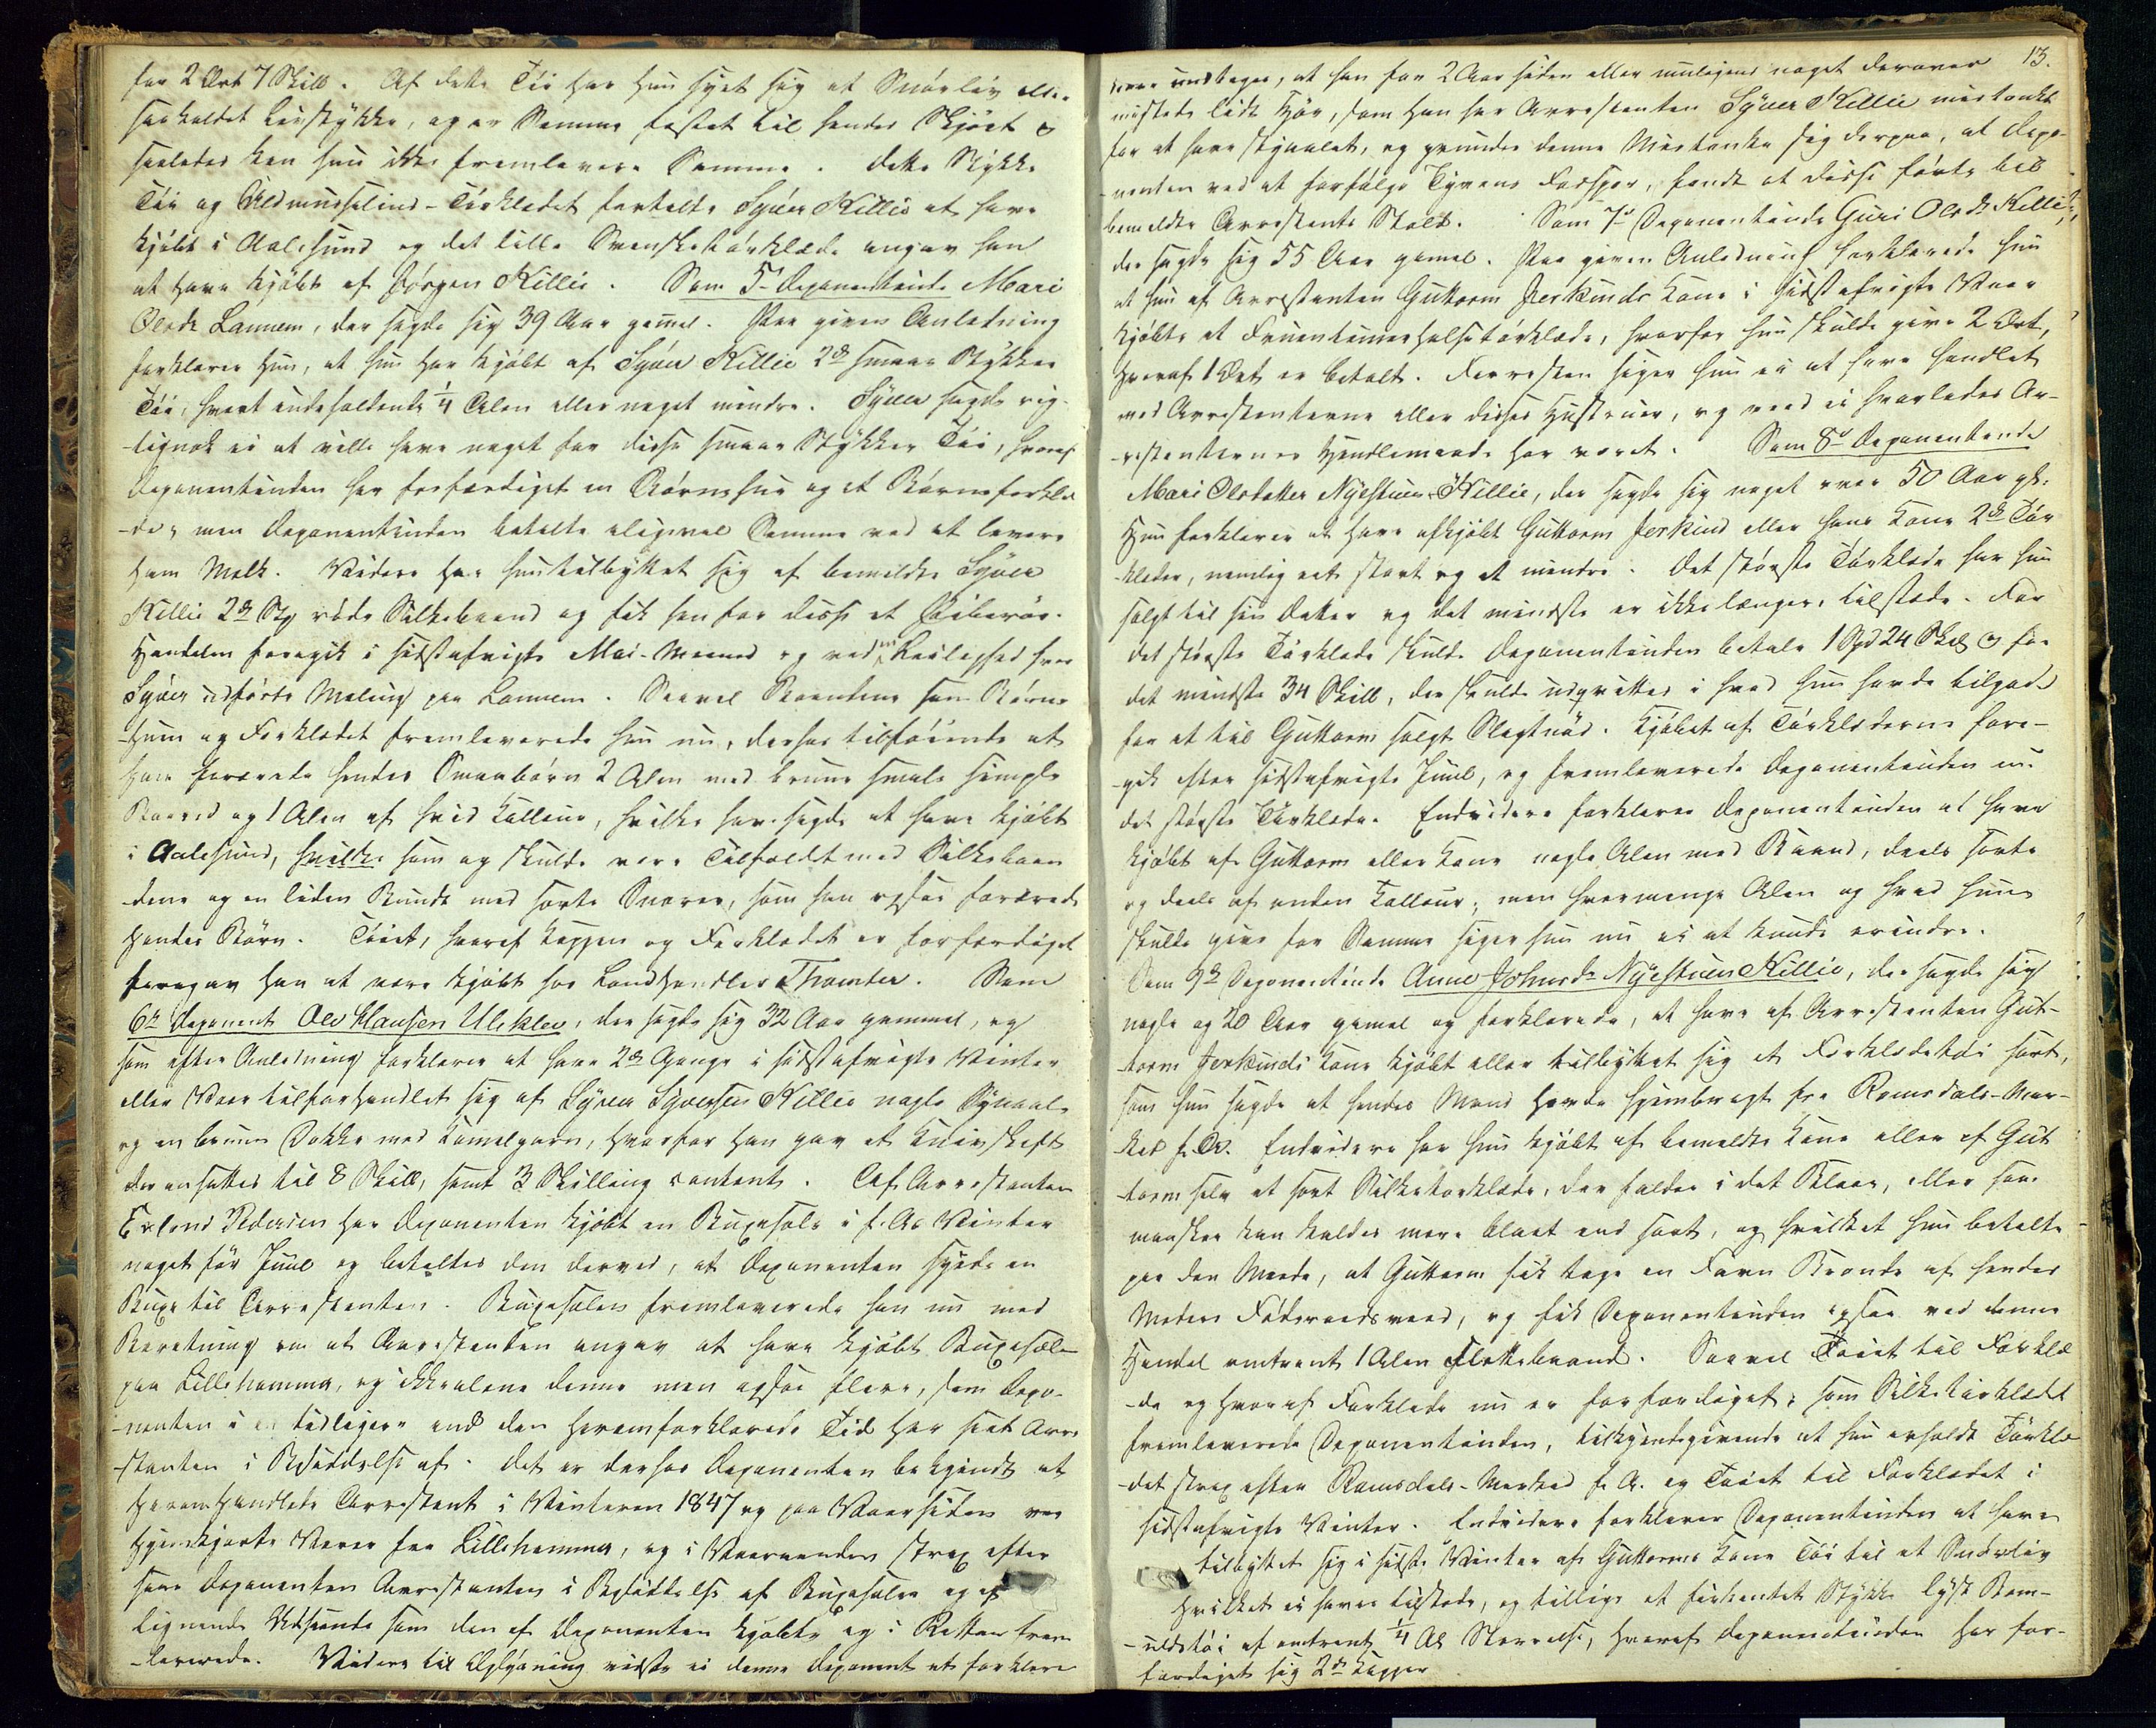 for 2 Ort 7 Skill. Af dette Töi har hun syet sig et Snörliv eller
saakaldet Livstykke, og er Samme fæstet til hendes Skjört og
saaledes kan hun ikke fremlevere Samme. Dette Stykke
Töi og Uldmusselins-Törklædet fortalte Syver Killie at have
kjöbt i Aalesund og det lille Svenske törklæde angav han
at have kjöbt af Jörgen Killie. Som 5te Deponentinde Mari
Olsdr Lannem, der sagde sig 39 Aar gammel. Paa given Anledning
forklarer hun, at hun har kjöbt af Syver Killie 2de smaae Stykker
Töi, hvert indeholdende 1/4 Alen eller noget mindre. Syver sagde rig-
-tignok ei at ville have noget for disse smaae Stykker Töi, hvoraf
Deponentinden har forfærdiget en Börnehue og et Börneforklæ
-de, men Deponentinden betalte aligevel Samme ved at levere
ham Melk. Videre har hun tilbyttet sig af bemeldte Syver
Killie 2de Stk röde Silkebaand og fik han for disse et
Handelen foregik i sidstafvigte Mai-Maaned og ved en Leilighed hvor
Syver udförte Maling paa Lannem. Saavel Baandene som Börne
-huen og Forklædet fremleverede hun nu, derhos tilföiende at
han forærede hendes Smaabörn 2 Alen med brune smale simple
Baand og 1 Alen af hvid Kulleur, hvilke han sagde at have kjöbt
i Aalesund, hvilke som og skulde være Tilfældet med Silkebaan
-dene og en liden Bundt med sorte Snorer, som han ogsaa forærede
hendes Börn. Töiet, hvoraf Kappen og Forklædet er forfærdiget
foregav han at være kjöbt hos Landhandler Thomter. Som
6te Deponent Ole Hansen Ulekleo, der sagde sig 32 Aar gammel, og
som efter Anledning forklarer at have 2de Gange i sidstafvigte Vinter
eller Vaar tilforhandlet sig af Syver Syversen Killie nogle Synaale
og en brun Dokke med Kamelgarn, hvorfor han gav et Knivskeft
der ansattes til 8 Skill, samt 3 Skilling contant. Af Arrestanten
Erlend Pedersen har Deponenten kjöbt en Buxesele i f. Aars Vinter
noget för Juul og betaltes den derved, at Deponenten syede en
Buxe til Arrestanten. Buxeselen fremleverede han nu med
Beretning om at Arrestanten angav at have kjöbt Buxesele
paa Lillehammer, og ikke alene denne men ogsaa flere, som Depo-
-nenten i en tidligere end den herom forklarede Tid har seet Arre
-stanten i Besiddelse af. Det er derhos Deponenten bekjendt at
heromhandlede Arrestant i Vinteren 1847 og paa Vaarsiden var
hjemkjörte Varer fra Lillehammer, og i Vaaraanden strax efter
saae Deponenten Arrestanten i Besiddelse af Buxeseler og af
lignende Udseende som den af Deponenten kjöbte og i Retten frem
-leverede. Videre til Oplysning vidste ei denne Deponent at forklare

13.
være undtagen, at han for 2 Aar siden eller muligens noget derover
mistede lidt Höe, som han har Arrestanten Syver Killie mistænkt
for at have stjaalet, og grunder denne Mistanke sig derpaa, at Depo-
-nenten ved at forfölge Tyvens Fodspor, fandt at disse förte til
bemeldte Arrestants Stald. Som 7de Deponentinde Guri Olsdr Killie,
der sagde sig 55 Aar gammel. Paa given Anledning forklarede hun
at hun af Arrestanten Guttorm Jerkinds Kone i sidstafvigte Vaar
kjöbte et Fruentimmerhalsetörklæde, hvorfor hun skulde give 2 Ort,
hvoraf 1 Ort er betalt. Forresten siger hun ei at have handlet
med Arrestanterne eller disses Hustruer, og veed ei hvorledes Ar-
-restanternes Handlemaade har været. Som 8de Deponentinde
Mari Olsdatter Nyestuen Killie, der sagde sig noget over 50 Aar gl.
Hun forklarer at have afkjöbt Guttorm Jerkind eller hans Kone 2de Tör
-klæder, nemlig eet stort og et mindre. Det störste Törklæde har hun
solgt til sin Datter og det mindste er ikke længere tilstede. For
det störste Törklæde skulde Deponentinden betale 1 Spd 24 Skill og for
det mindste 34 Skill, der skulde udqvittes i hvad hun havde tilgode
for et til Guttorm solgt Slagtnöd. Kjöbet af Törklæderne fore-
-gik efter sidstafvigte Juul, og fremleverede Deponentinden nu
det störste Törklæde. Endvidere forklarer Deponentinden at have
kjöbt af Guttorm eller Kone nogle Alen med Baand, deels sorte
og deels af anden Kulleur; men hvormange Alen og hvad hun
skulle give for Samme siger hun nu ei at kunde erindre.
Som 9de Deponentinde Anne Johnsdr Nyestuen Killie, der sagde sig
nogle og 20 Aar gammel og forklarede, at have af Arrestanten Gut-
-torm Jerkinds Kone kjöbt eller tilbyttet sig et Forklædetöi sort,
som hun sagde at hendes Mand havde hjembragt fra Romsdals-Mar-
-ked f. A. Endvidere har hun kjöbt af bemeldte Kone eller af Gut
-torm selv et sort Silketörklæde, der falder i det Blaae, eller som
maaskee kan kaldes mere blaat end sort, og hvilket hun betalte
paa den Maade, at Guttorm fik tage en Favn Brænde af hendes
Moders Föderaadsveed, og fik Deponentinden ogsaa ved denne
Handel omtrent 1 Alen Flettebaand. Saavel Töiet til Forklæ
-de og hvoraf Forklæde nu er forfærdiget, som Silketörklædet
fremleverede Deponentinden, tilkjendegivende at hun erholdt Törklæ
-det strax efter Romsdals-Marked f. A. og Töiet til Forklædet i
sidstafvigte Vinter. Endvidere forklarer Deponentinden at have
tilbyttet sig i sidste Vinter af Guttorms Kone Töi til et Snörliv
hvilket ei haves tilstede, og tillige et firkantet Stykke lyst Bom-
-uldstöi af omtrent 1/4 Al Störrelse, hvoraf Deponentinden har for-
færdiget sig 2de Kapper